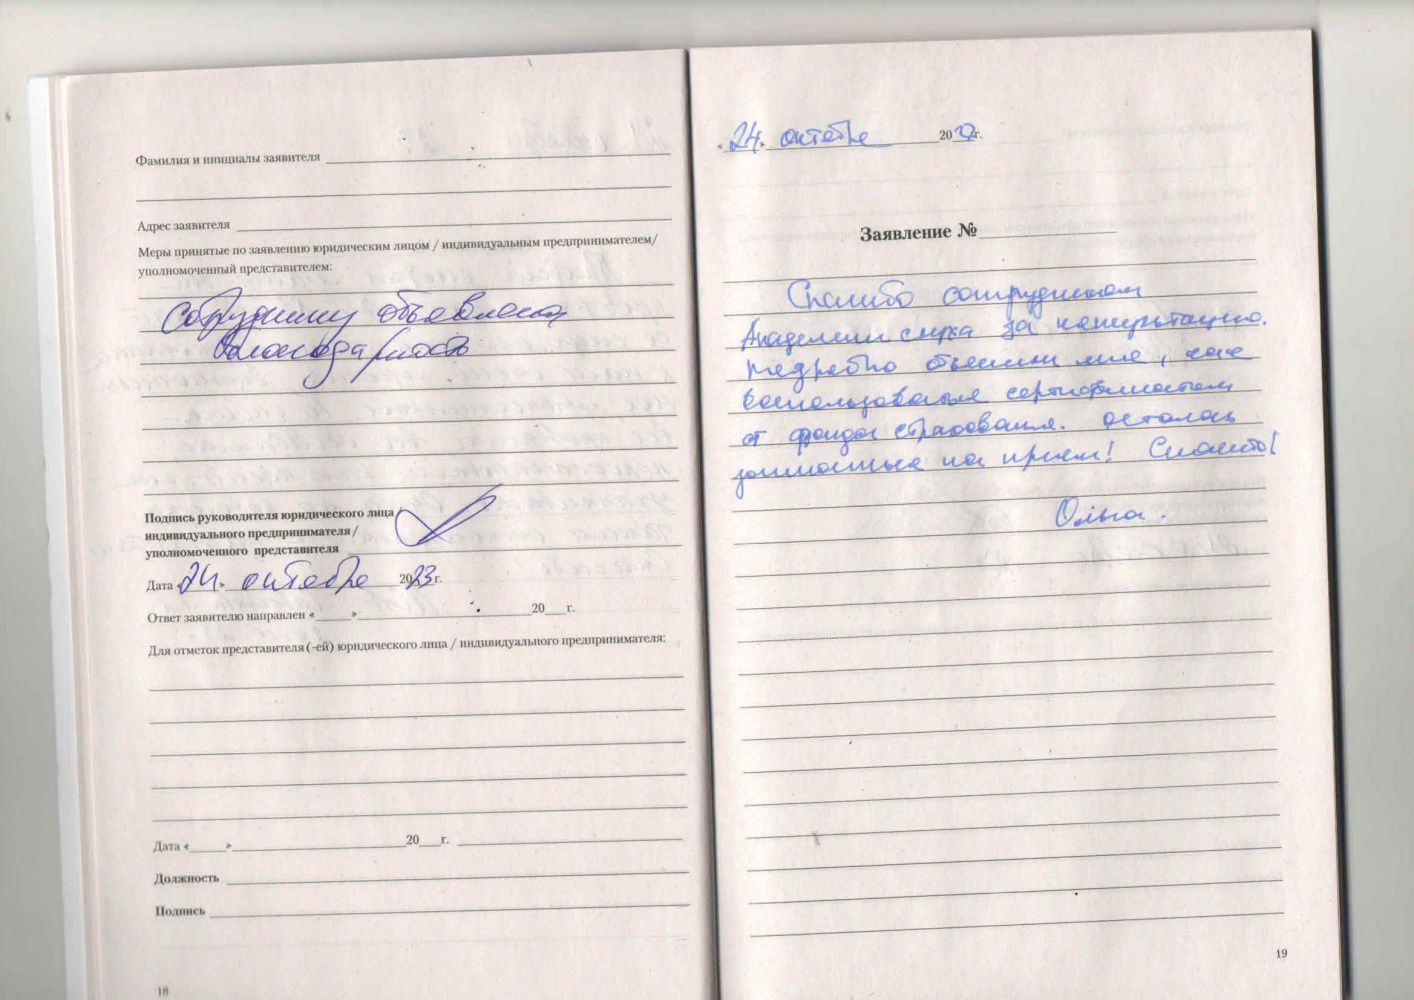 Фамилия и инициалы заявителя
Адрес заявителя
Меры принятые по заявлению юридическим лицом / индивидуальным предпринимателем/
уполномоченный представителем:
Сотруднику объявлена
благодарность
Подпись руководителя юридического лица /
индивидуального предпринимателя/
уполномоченного представителя
Дата «24» октября 2023 г.
Ответ заявителю направлен «    »     20   г.
Для отметок представителя (-ей) юридического лица / индивидуального предпринимателя:
Дата «    »     20   г.
Должность
Подпись
18
«24» октября 20 г.
Заявление №
Спасибо сотрудникам
Академии слуха за консультацию.
подробно объяснили мне, как
воспользоваться сертификатом
от фонда страхования. осталось
записаться на прием! Спасибо!
Ольга.
19